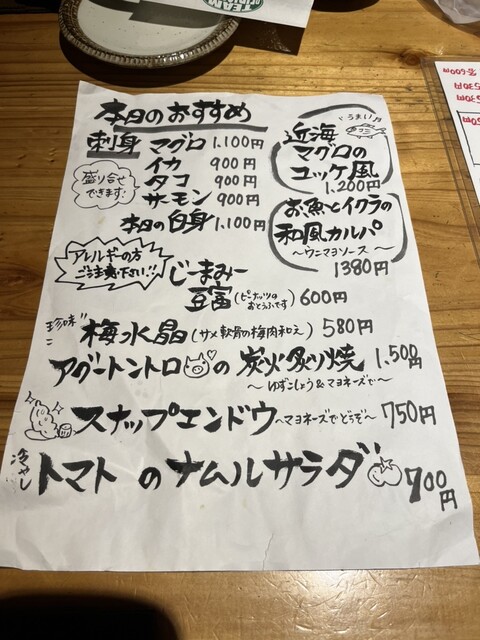 本日のおすすめ
刺身 マグロ 1,100円
イカ 900円
タコ 900円
サーモン 900円
本日の白身 1,100円
盛り合せ
できます!
うまい♬
近海
マグロの
ユッケ風
1,200円
お魚とイクラの
和風カルパ
〜ウニマヨソース〜
1380円
アレルギーの方
ご注意下さい!!
じーまみー
豆富(ピーナッツのおとうふです) 600円
珍味 梅水晶(サメ軟骨の梅肉和え) 580円
アグートントロの炭火炙り焼 1,500円
〜ゆずこしょう&マヨネーズで〜
スナップエンドウ〜マヨネーズでどうぞ〜 750円
冷やし トマトのナムルサラダ 700円
TEAM